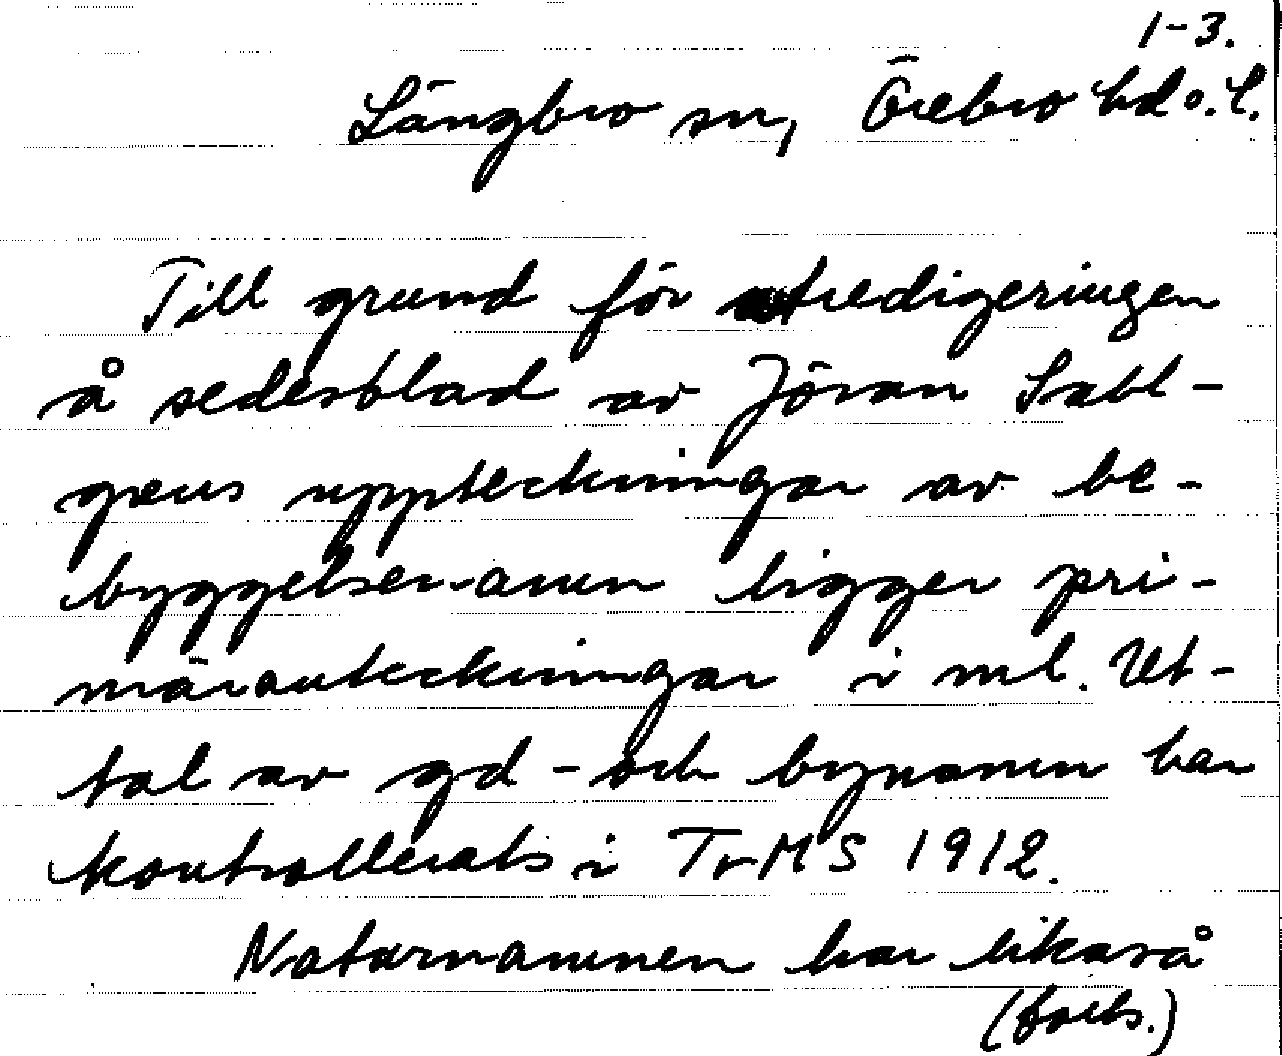 1-3.
Längbro sn, Örebro hd o. l.
Till grund för utredigeringen
å sedesblad av Jöran Sahl-
grens uppteckningar av be-
byggelsenamn ligger pri-
märanteckningar i ml. Ut-
tal av gd- och bynamn har
kontrollerats i TrMS 1912.
Naturnamnen har likaså
(forts.)